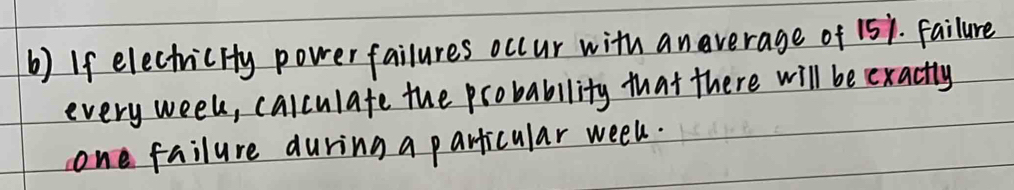 b) If electricity power failures occur with an average of 15%. failure
every week, calculate the probability that there will be exactly
one failure during a particular week.